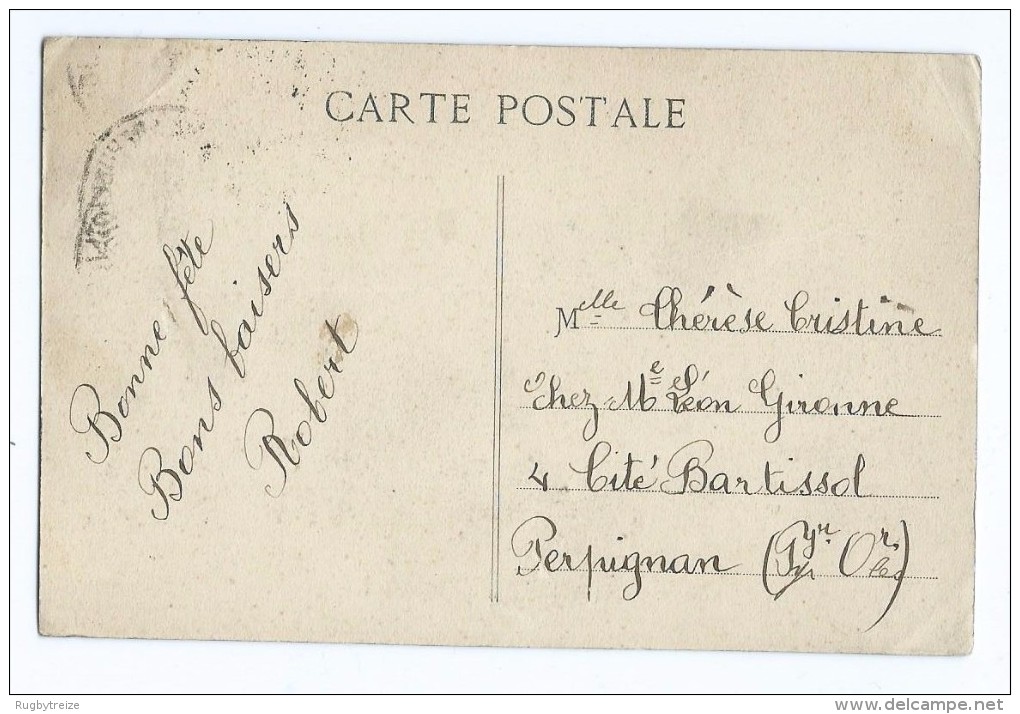 CARTE POSTALE
Bonne fête
Bons baisers
Robert
Melle Thérèse Cristine
Chez Me Léon Gironne
4 Cité Bartissol
Perpignan (Pyr. Or.les)
Rugbytreize
www.delcampe.net